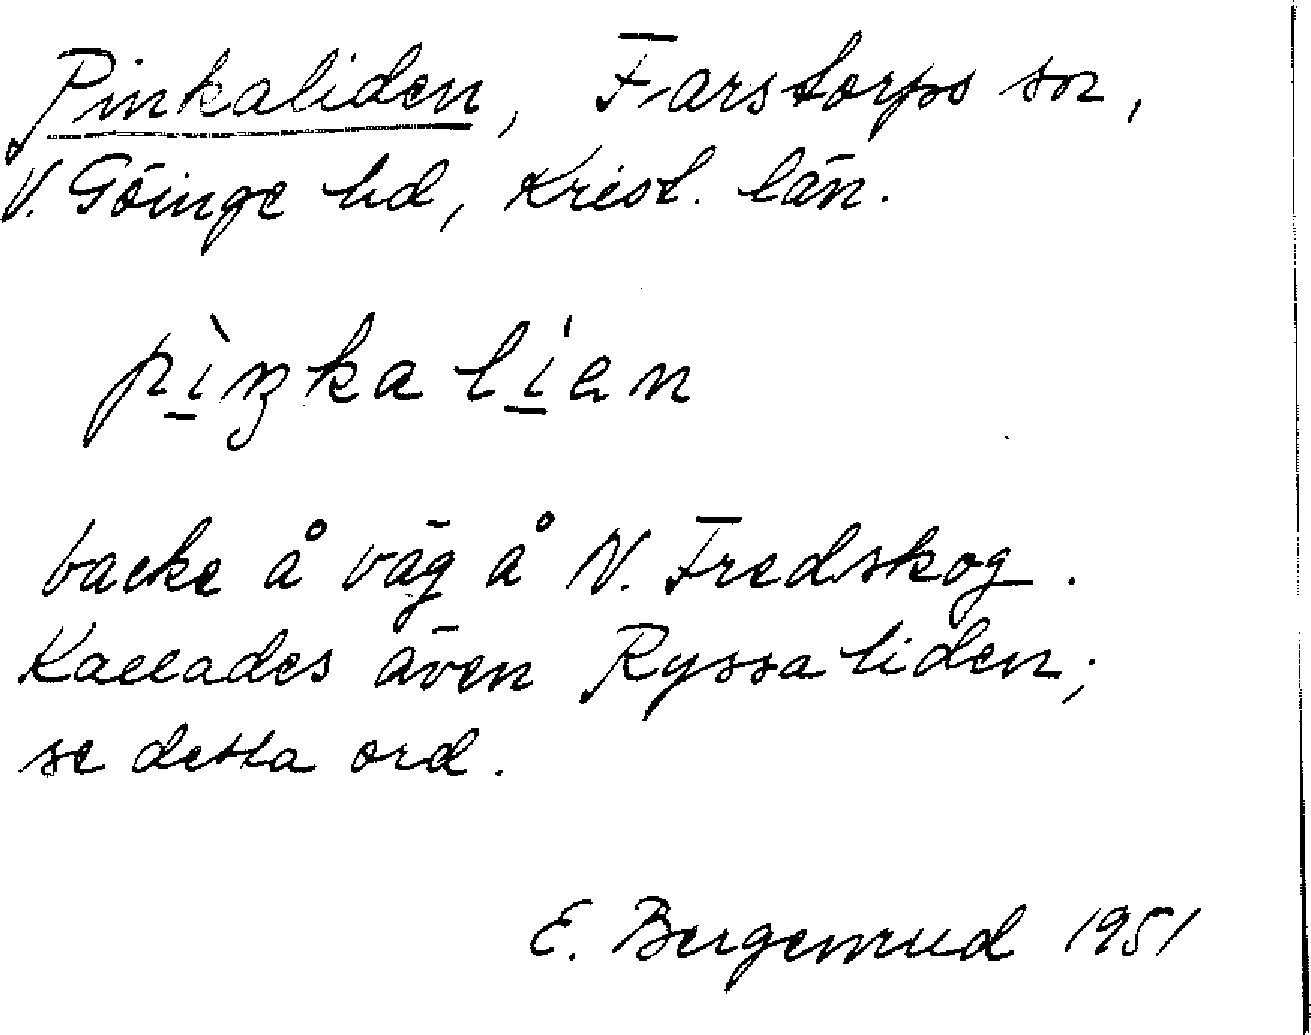 Pinkaliden, Farstorps sn,
V. Göinge hd, Krist. län.
pìŋka líən
backe å väg å N. Fredskog.
Kallades även Ryssaliden;
se detta ord.
E. Bergemrud 1951